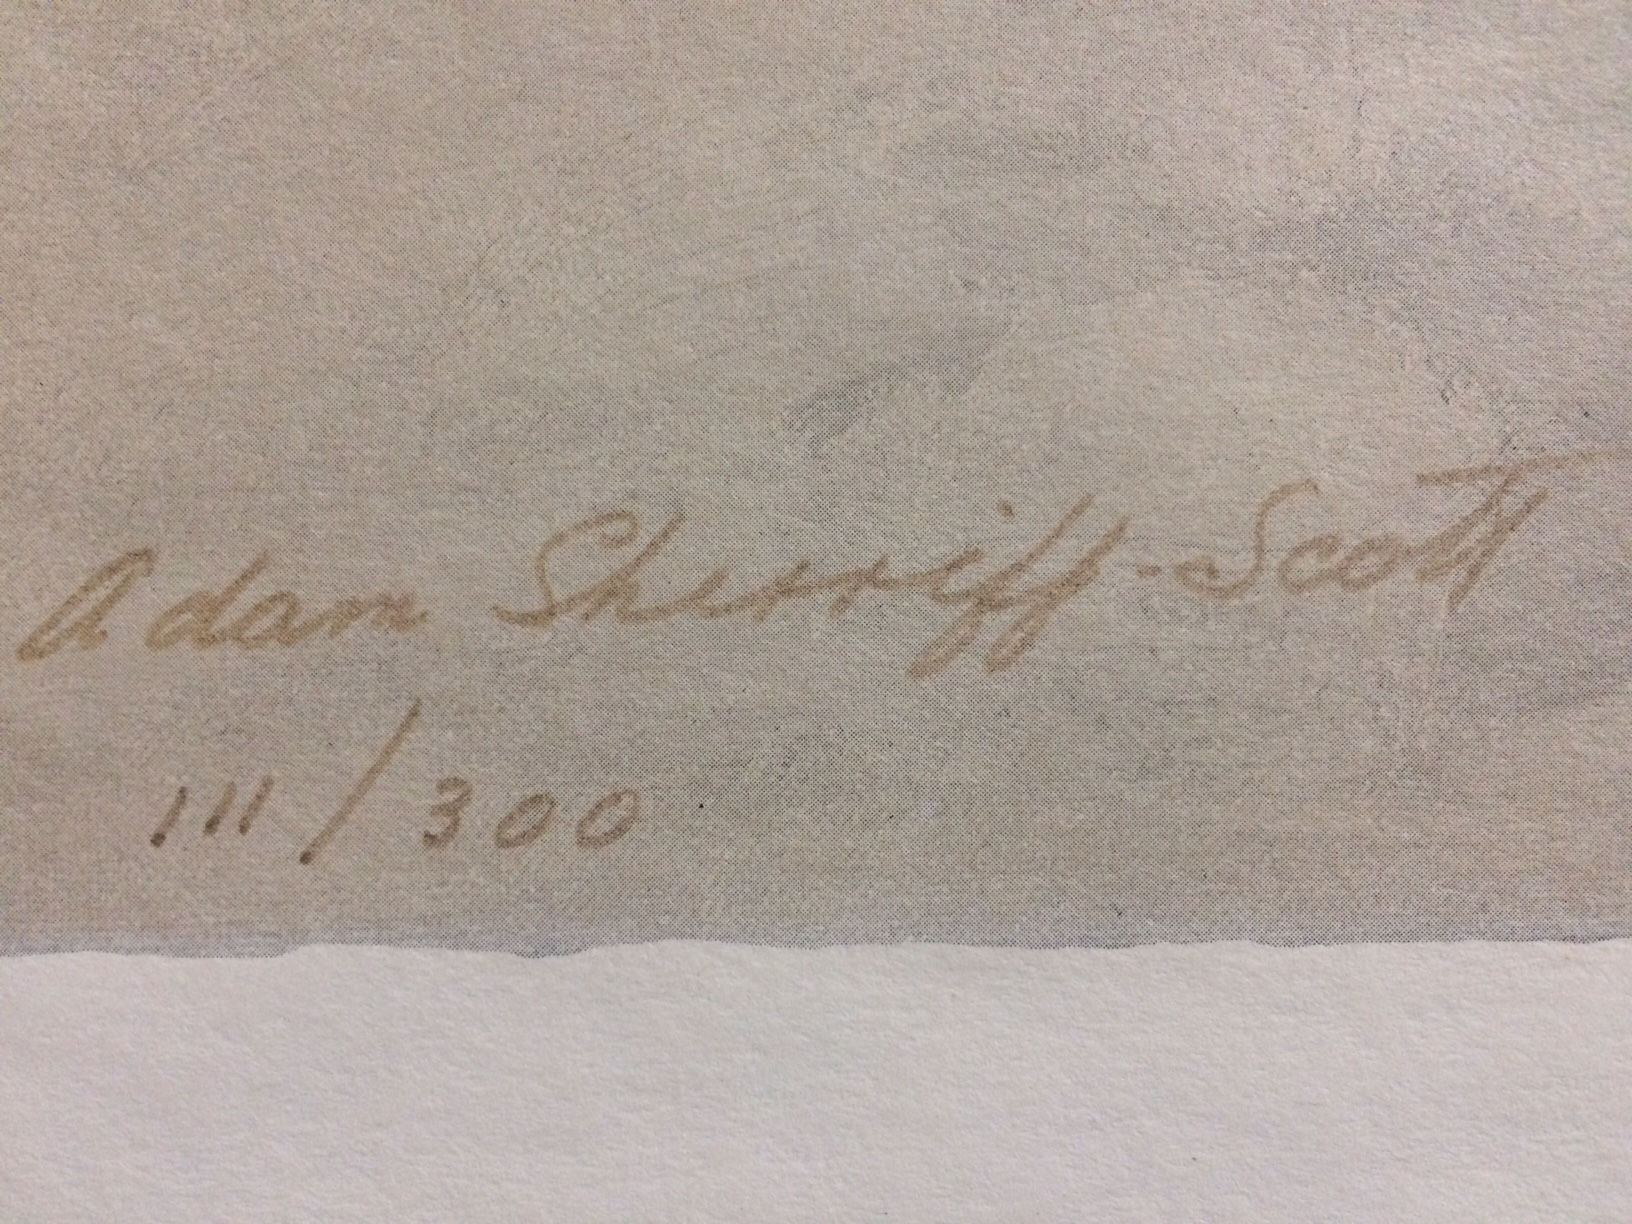 Adam Sherriff-Scott
111/300